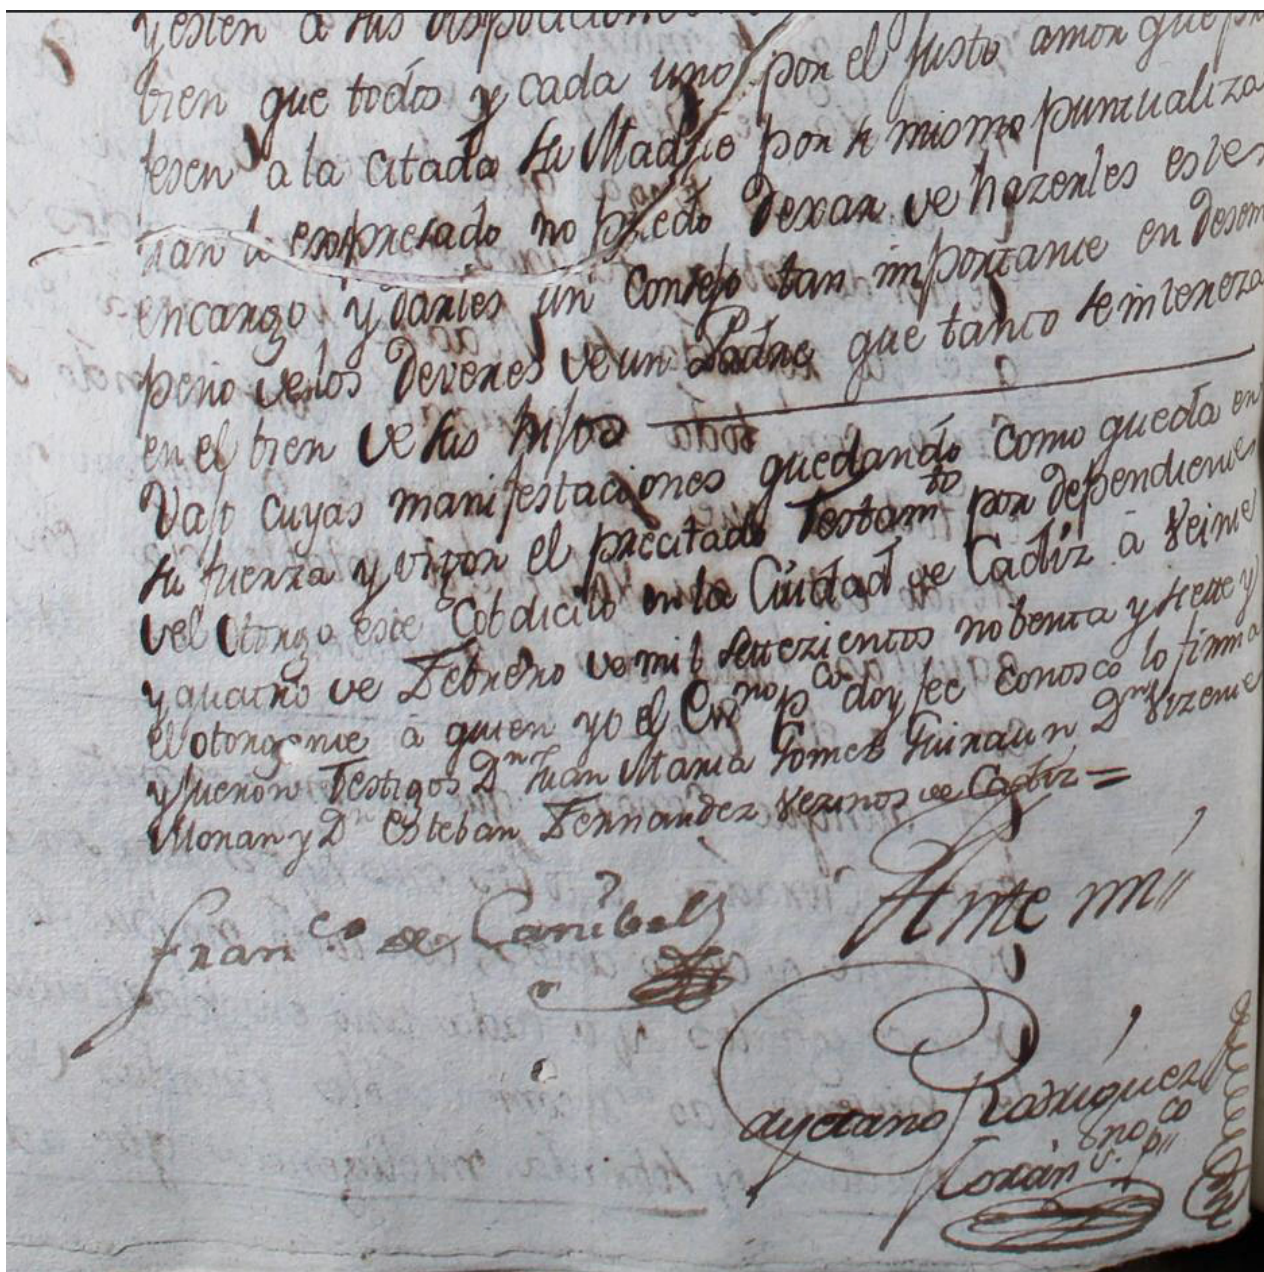 y esten a sus disposiciones
bien que todos y cada uno por el justo amor que pro
fesen a la citada su Madre por si mismo puntualiza
ran lo expresado no puedo dexar de hazerles este
encargo y darles un consejo tan importante en desem
peño de los deveres de un Padre que tanto se intereza
en el bien de sus hijos
Vajo cuyas manifestaciones quedando como queda en
su fuerza y vigor el precitado Testamto por dependiente
del otorgo este Cobdicilo en la Ciudad de Cadiz à veinte
y quatro de Febrero de mil settezientos nobenta y siette y
el otorgante à quien yo el Essno pco doy fee conosco lo firmo
y fueron Testigos Dn Juan Maria Gomes Dn Vizente
Moran y Dn Esteban Fernandez vezinos de Cadiz =
Franco de Canibell
Ante mi
Cayetano Rodriguez
Essno pco